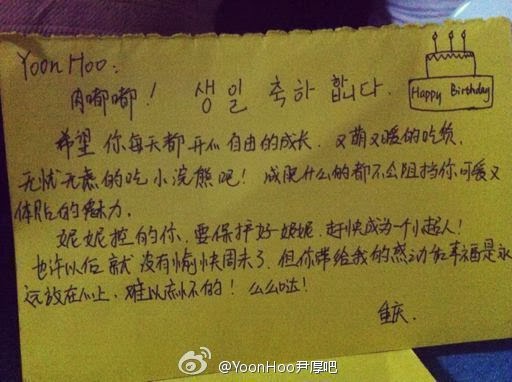 Yoon Hoo:
肉嘟嘟! 생일 축하 합니다.
Happy Birthday
希望你每天都开心自由的成长. 又萌又暖的吃货,
无忧无虑的吃小浣熊吧! 成肥什么的都不会阻挡你可爱又
体贴的魅力.
妮妮控的你, 要保护好妮妮, 赶快成为一个小超人!
也许以后就没有愉快周末了. 但你带给我的感动和幸福是永
远放在心上, 难以忘怀的! 么么哒!
重庆.
@YoonHoo尹厚吧